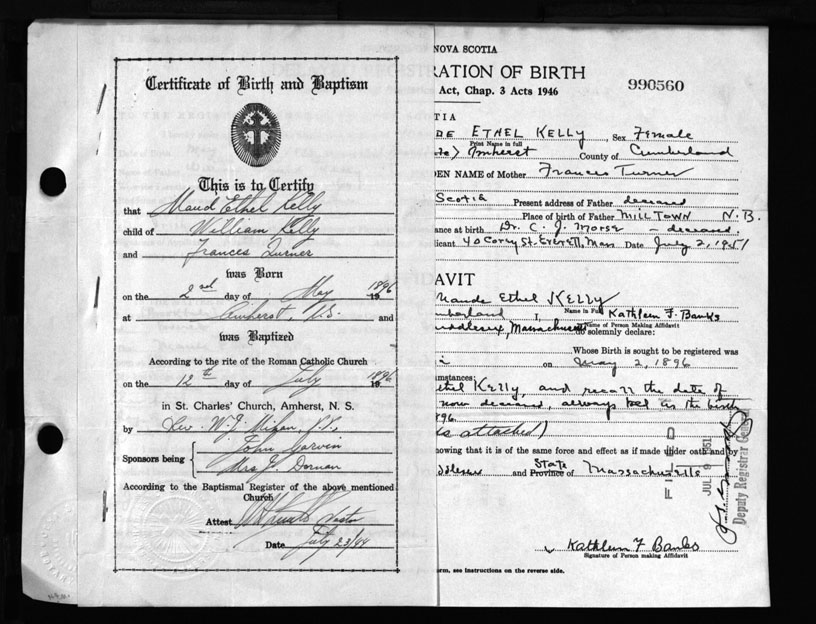 Certificate of Birth and Baptism
This is to Certify
that Maud Ethel Kelly
child of William Kelly
and Frances Turner
was Born
on the 2nd day of May 1896
at Amherst, N.S. and
was Baptized
According to the rite of the Roman Catholic Church
on the 12th day of July 1896
in St. Charles' Church, Amherst, N. S.
by Rev. W. J.
Sponsors being John Garvin
Mrs J. Dornan
According to the Baptismal Register of the above mentioned
Church
Attest Pastor
Date July 23/44
NOVA SCOTIA
RATION OF BIRTH
Act, Chap. 3 Acts 1946
990560
TIA
DE ETHEL KELLY, Sex Female
Print Name in full
Amherst County of Cumberland
DEN NAME of Mother Frances Turner
Scotia Present address of Father deceased
Place of birth of Father MILLTOWN N.B.
ance at birth Dr. C. J. Morse - deceased.
icant 40 Corey St. Everett, Mass Date July 2, 1951
AVIT
Maude Ethel KELLY
Name in Full
mberland I, Kathleen F. Banks
Name of Person Making Affidavit
iddlesex, Massachusetts do solemnly declare:
Whose Birth is sought to be registered was
on May 2, 1896
cumstances:
ethel Kelly, and recall the date of
now deceased, always tell us the birth
896
is attached)
nowing that it is of the same force and effect as if made under oath and by
ddlesex and State Province of Massachusetts
FILED
JUL 9 1951
Deputy Registrar General
Kathleen F Banks
Signature of Person making Affidavit
orm, see instructions on the reverse side.